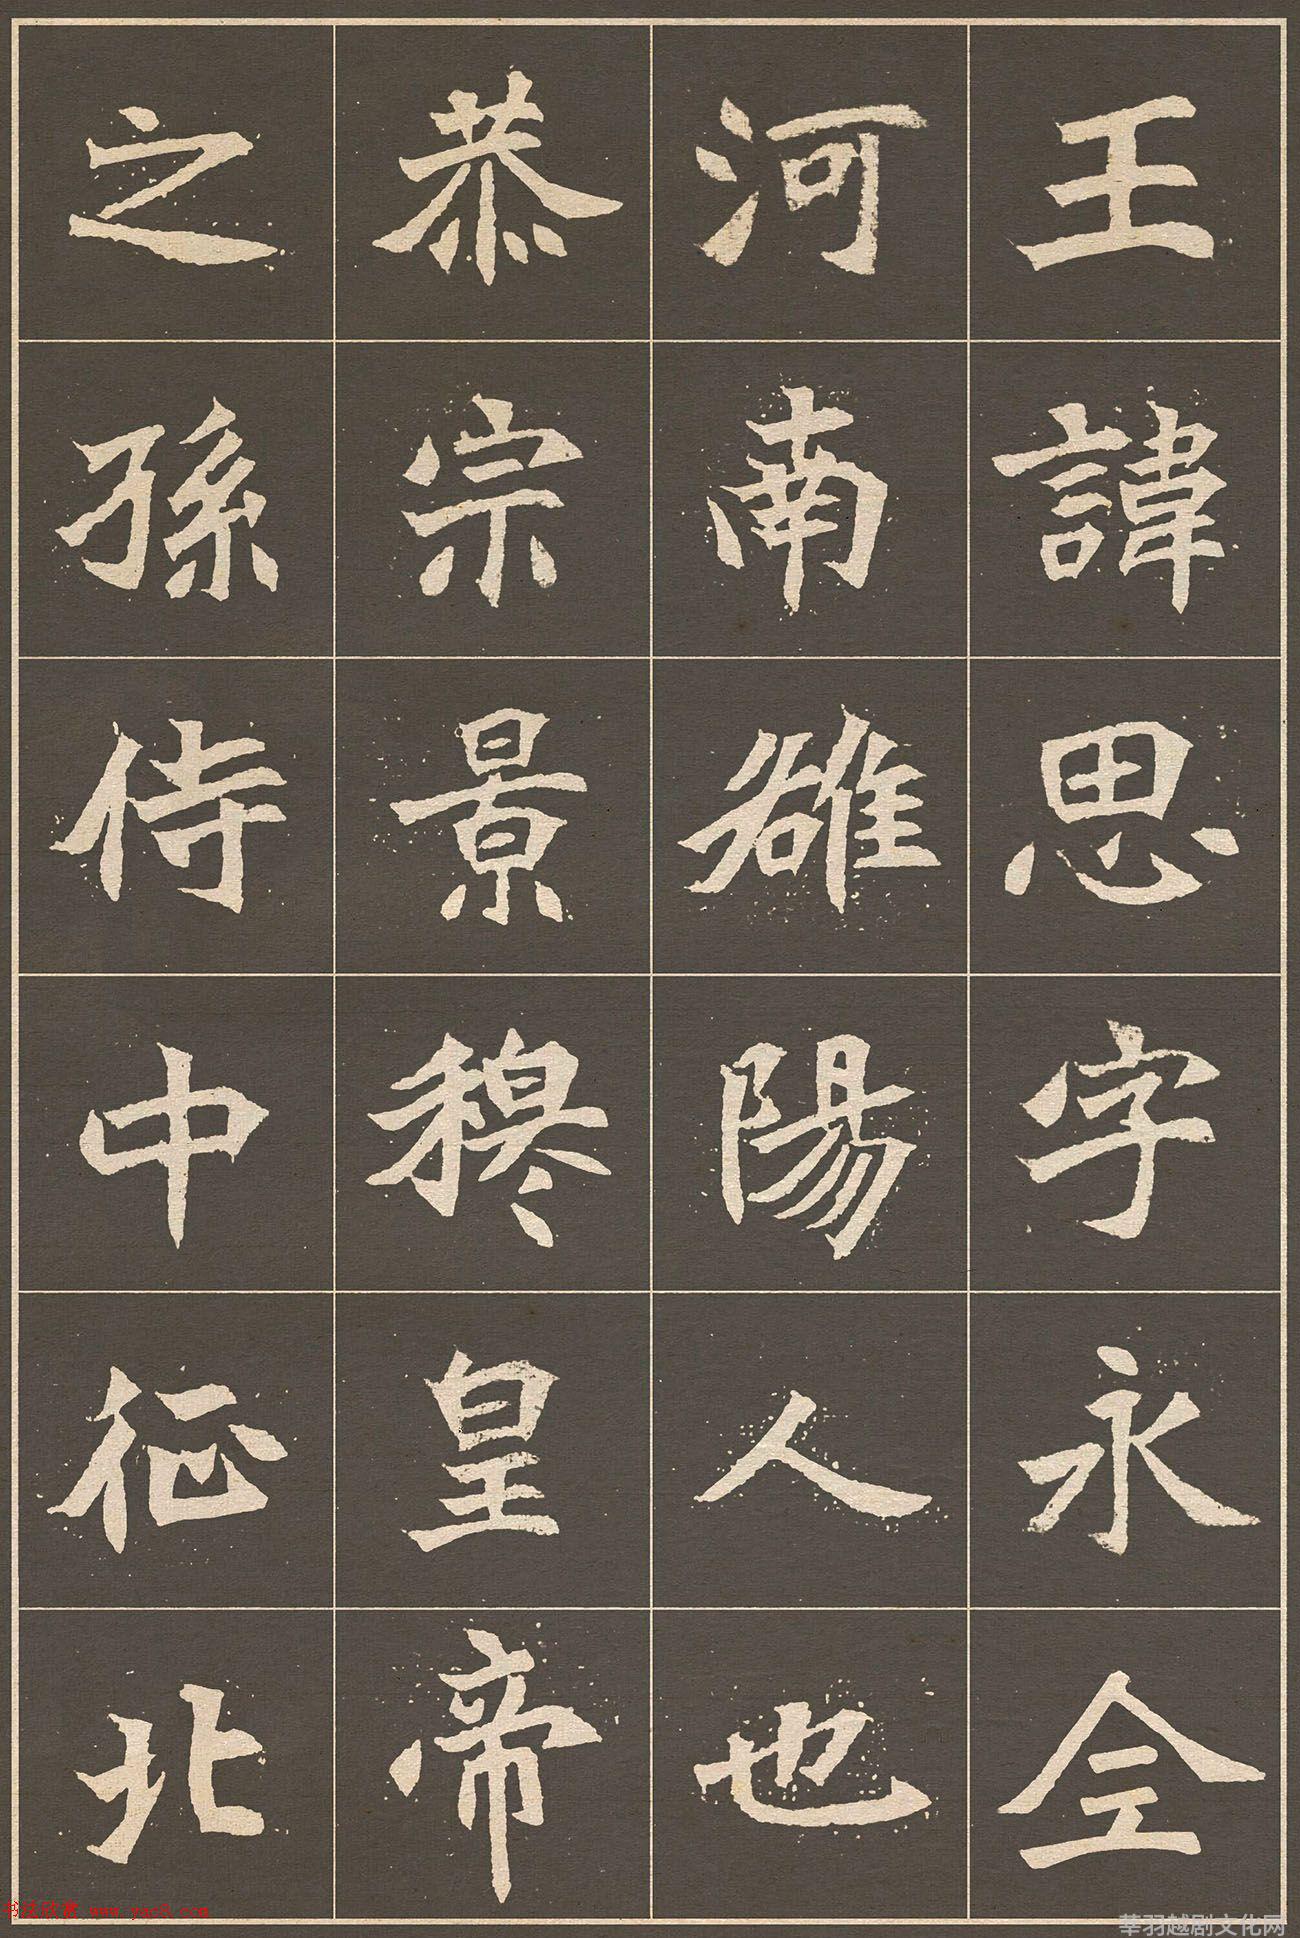 王諱思字永全
河南雒陽人也
恭宗景穆皇帝
之孫侍中征北
书法欣赏 www.yac8.com
莘羽越剧文化网